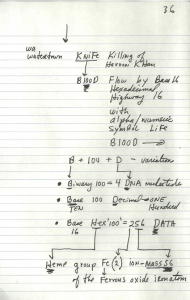 36
wa
watertown KNiFe Killing of
Heroin Khan
B100D Flow by Base 16
Hexadecimal
Highway 16
with
alpha/numeric
symbolic Life
B100D
B + 100 + D - variation
• Binary 100 = 4 DNA nucleotide
• Base 100 Decimal = ONE
TEN Hundred
• Base Hex '100' = 256 DATA
16
Heme group Fe (2) ION-MASS 56
of the Ferrous oxide iron atom